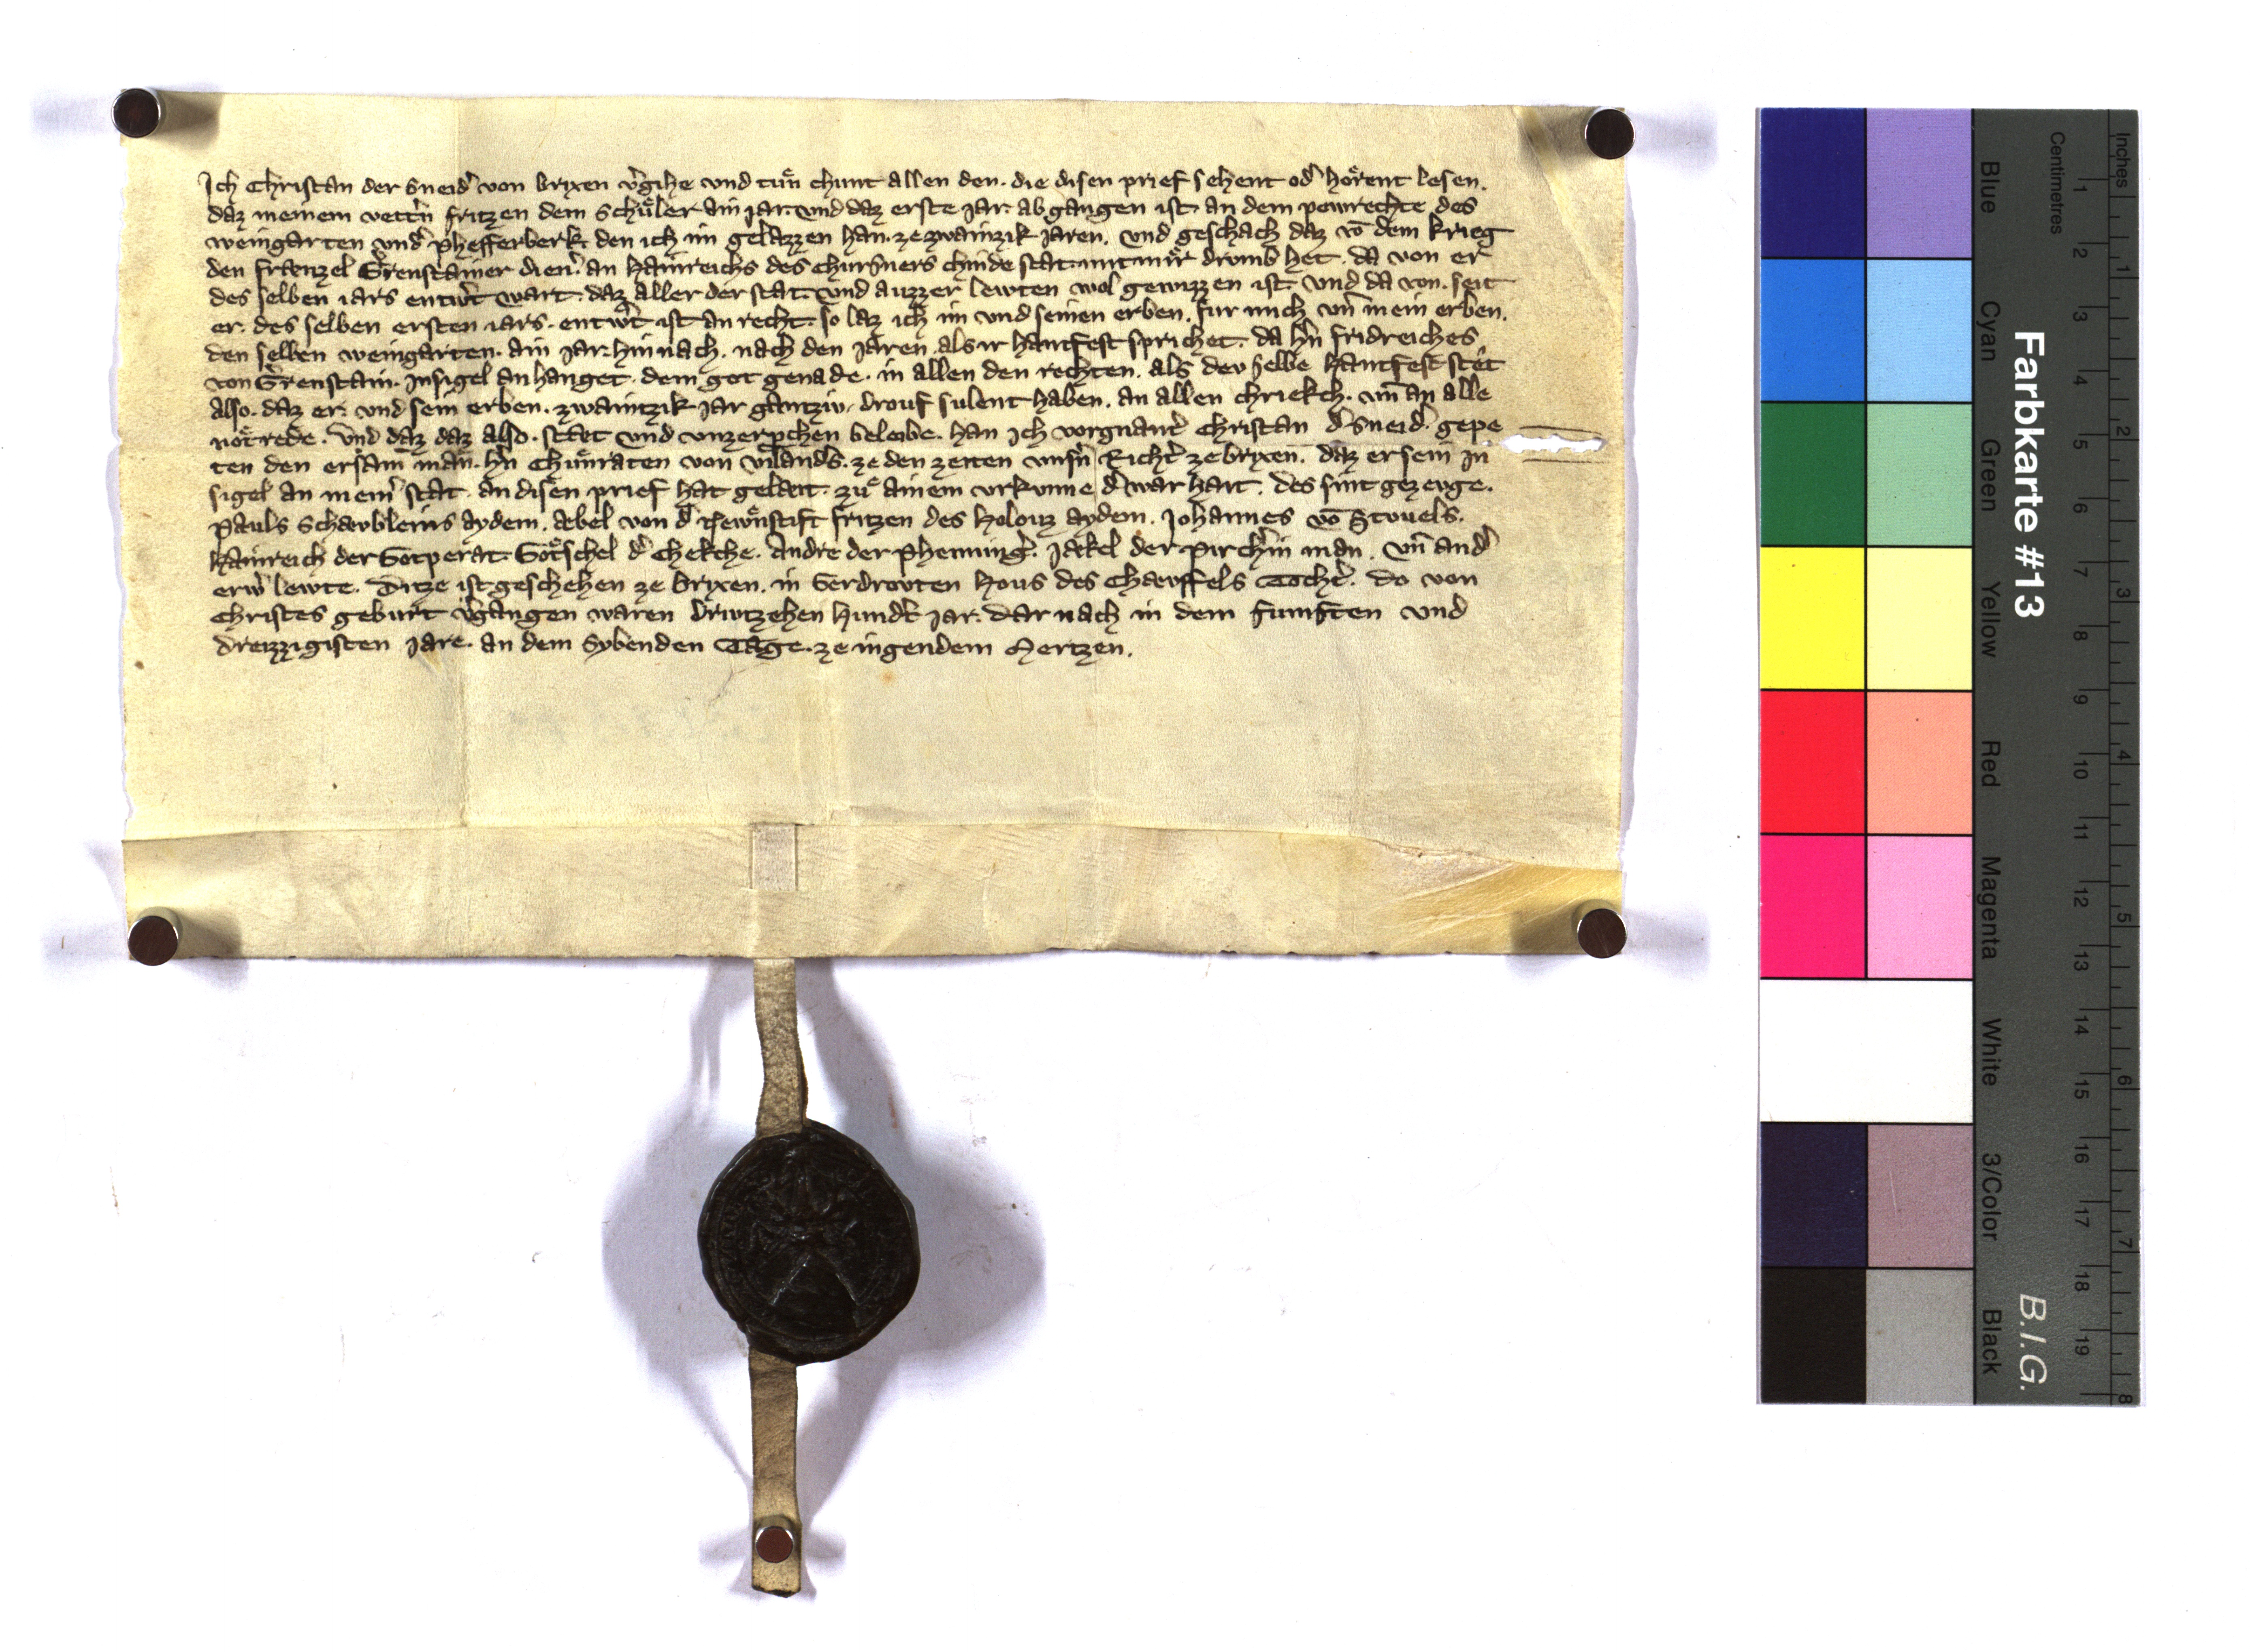 Ich Christan der Sneid̾ von brixen v̾gihe vnd tuͤn chunt allen den. die disen prief sehent od̾ hoͤrent lesen.
daz meinem vett̾n fritzen dem Schuͤler ain jar. vnd daz erste jar. ab gangen ist. an dem powrechte des
weingarten vnd̾ Phefferberk. den ich im gelazzen han. ze zwainzik jaren. vnd geschach daz vō dem krieg
den fraenzel Grenstainer dien̾. an hainreichs des chursners chinde stat. mit mir drumb het. da von er
des selben iars entw̾t wart. daz aller der stat. vnd auzzer lewten wol gewizzen ist. vnd da von. seit
er. des selben ersten iars. entw̾t ist an recht. so laz ich im vnd seinen erben. fur mich vn̄ mein erben.
den selben weingarten. ain jar. hin nach. nach den jaren. als ir hantfest sprichet. da h̾n fridreiches
von Grenstain. Insigel an hanget. dem got genade. in allen den rechten. als dev selbe hantfest stet
also. daz er. vnd sein erben. zwaintzik jar gantziv. drouf sulent haben. an allen chriekch. vn̄ an alle
noͤtrede. Vnd daz daz also. staet vnd vnzerprchen beleibe. han ich vorgnant̾ Christan d̾ Sneid̾. gepe
ten den ersam̄ man. h̾n Chuͤnraten von Vilanders. ze den zeiten vnsn̾ Richt̾ ze brixen. daz er sein In
sigel an mein̾ stat. an disen prief hat geleat. zuͤ ainem vrkunne d̾ warhait. des sint gezeuge.
Pauls Schaebleins aydem. aebel von d̾ Newnstift fritzen des holouz aydem. Johannes vō Stouels.
hainreich der Gotperat. Goͤtschel d̾ Chekche. Andre der Phenning̾. Jaekel der Pirch̾in man. Vn̄ and̾
erw̾ lewte. Ditze ist geschehen ze brixen. in Gerdrovten hous des Chaeffels Tocht̾. do von
Christes geburt v̾gangen waren driwtzehen hund̾t jar. dar nach in dem funften vnd
dreizzigisten jare. an dem Sybenden Tage. ze ingendem Mertzen.
Farbkarte #13
B.I.G.
Inches
Centimetres
1 2 3 4 5 6 7 8 9 10 11 12 13 14 15 16 17 18 19
1 2 3 4 5 6 7 8
Blue
Cyan
Green
Yellow
Red
Magenta
White
3/Color
Black